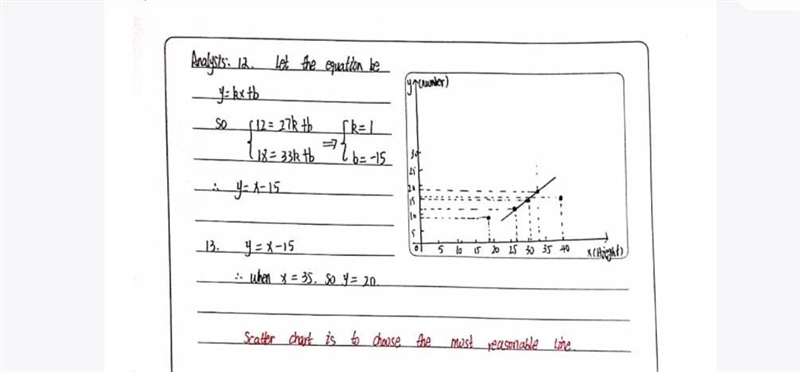 Analysis: 12. Let the equation be
y=kx+b
so { 12=27k+b ⇒ { k=1
18=33k+b b=-15
∴ y=x-15
13. y=x-15
∴ when x=35. so y=20.
Scatter chart is to choose the most reasonable line.
y (number)
30
25
20
15
10
5
0 5 10 15 20 25 30 35 40 x (Height)